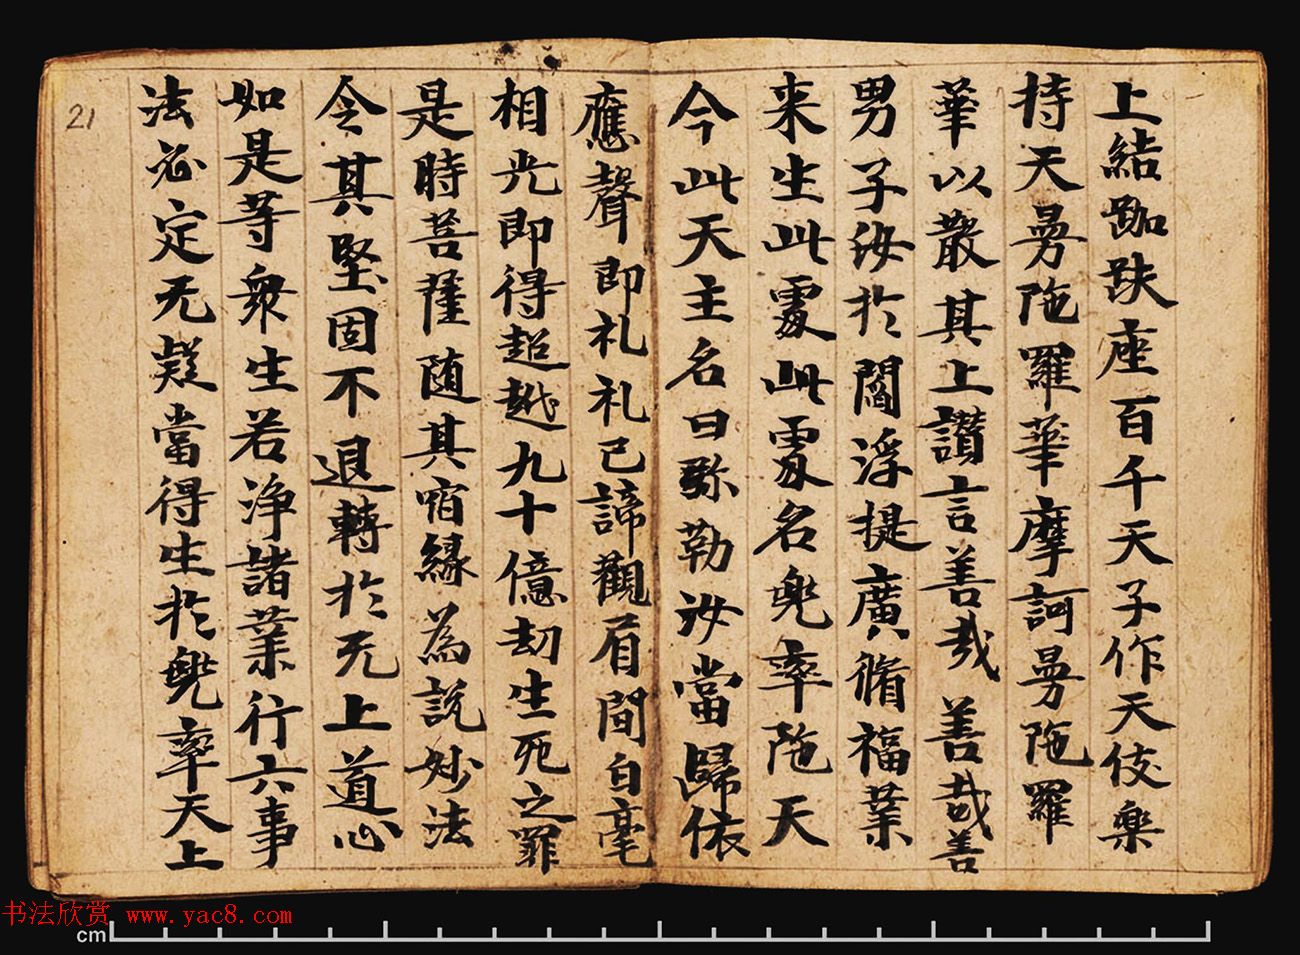 上結跏趺座百千天子作天伎樂
持天曼陁羅華摩訶曼陁羅
華以散其上讃言善哉善哉善
男子汝於閻浮提廣脩福業
来生此處此處名兜率陁天
今此天主名曰弥勒汝當歸依
應聲即礼礼已諦觀眉間白毫
相光即得超越九十億劫生死之罪
是時菩薩随其宿緣為説妙法
令其堅固不退轉於无上道心
如是等衆生若浄諸業行六事
法必定无疑當得生於兜率天上
21
书法欣赏 www.yac8.com
cm